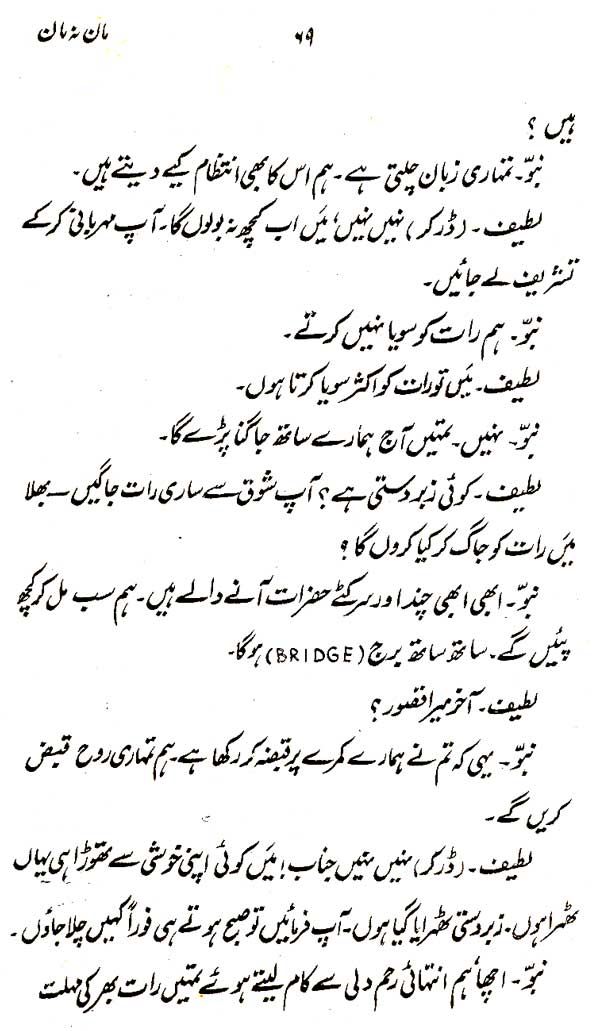 مان نہ مان
۶۹
ہیں ؟
نبّو۔ تمہاری زبان چلتی ہے۔ ہم اس کا بھی انتظام کیے دیتے ہیں۔
لطیف۔ (ڈر کر) نہیں نہیں، مَیں اب کچھ نہ بولوں گا۔ آپ مہربانی کر کے
تشریف لے جائیں۔
نبّو۔ ہم رات کو سویا نہیں کرتے۔
لطیف۔ مَیں تو رات کو اکثر سویا کرتا ہوں۔
نبّو۔ نہیں۔ تمہیں آج ہمارے ساتھ جاگنا پڑے گا۔
لطیف۔ کوئی زبردستی ہے؟ آپ شوق سے ساری رات جاگیں — بھلا
مَیں رات کو جاگ کر کیا کروں گا ؟
نبّو۔ ابھی ابھی چند اور سر کٹے حضرات آنے والے ہیں۔ ہم سب مل کر کچھ
پئیں گے۔ ساتھ ساتھ برج (BRIDGE) ہو گا۔
لطیف۔ آخر میرا قصور ؟
نبّو۔ یہی کہ تم نے ہمارے کمرے پر قبضہ کر رکھا ہے۔ ہم تمہاری روح قبض
کریں گے۔
لطیف۔ (ڈر کر) نہیں نہیں جناب! مَیں کوئی اپنی خوشی سے تھوڑا ہی یہاں
ٹھہرا ہوں۔ زبردستی ٹھہرایا گیا ہوں۔ آپ فرمائیں تو صبح ہوتے ہی فوراً کہیں چلا جاؤں۔
نبّو۔ اچھا ہم انتہائی رحم دلی سے کام لیتے ہوئے تمہیں رات بھر کی مہلت